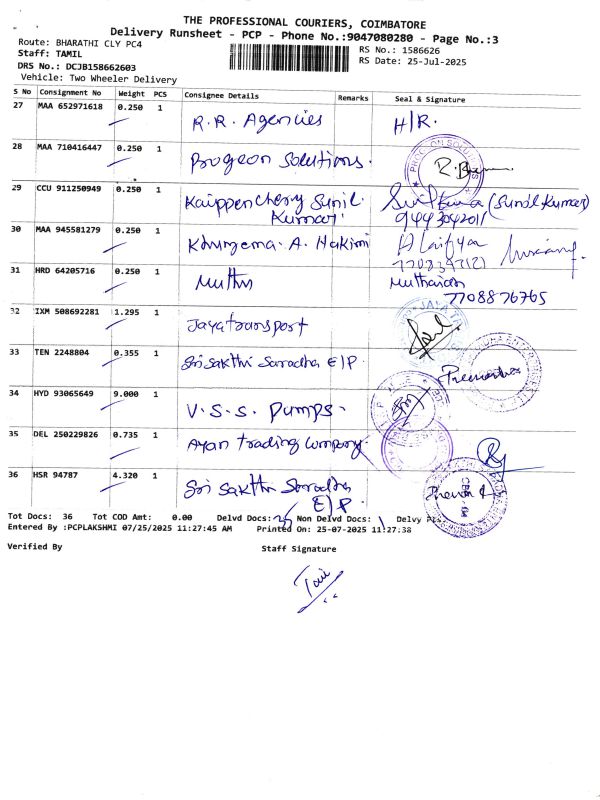 THE PROFESSIONAL COURIERS, COIMBATORE
Delivery Runsheet - PCP - Phone No.:9047080280 - Page No.:3
Route: BHARATHI CLY PC4
RS No.: 1586626
Staff: TAMIL
RS Date: 25-Jul-2025
DRS No.: DCJB158662603
Vehicle: Two Wheeler Delivery
S No Consignment No Weight PCS Consignee Details Remarks Seal & Signature
27 MAA 652971618 0.250 1 R.R. Agencies H/R.
28 MAA 710416447 0.250 1 Progeon Solutions.
29 CCU 911250949 0.250 1 Kaippenchery Sunil (Sunil Kumar)
Kumar. 9443042011
30 MAA 945581279 0.250 1 Khuzema. A. Hakimi
7708347121
31 HRD 64205716 0.250 1 Muthu Muthaiah
7708876765
32 IXM 508692281 1.295 1 Jayatransport
33 TEN 2248804 0.355 1 Sri Sakthi Saradha E/P.
34 HYD 93065649 9.000 1 V.S.S. Pumps.
35 DEL 250229826 0.735 1 Ayan trading Company.
36 HSR 94787 4.320 1 Sri Sakthi Saradha
E/P.
Tot Docs: 36 Tot COD Amt: 0.00 Delvd Docs: 35 Non Delvd Docs: 1 Delvy
Entered By :PCPLAKSHMI 07/25/2025 11:27:45 AM Printed On: 25-07-2025 11:27:38
Verified By Staff Signature